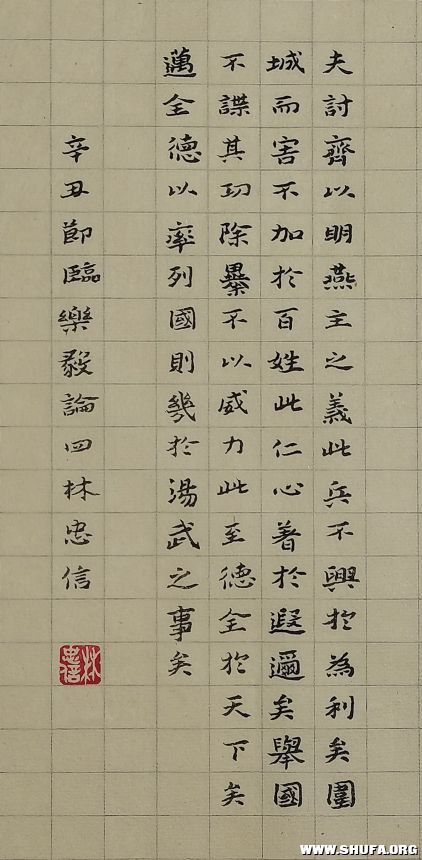 夫討齊以明燕主之義此兵不興於為利矣圍
城而害不加於百姓此仁心著於遐邇矣舉國
不謀其功除暴不以威力此至德全於天下矣
邁全德以率列國則幾於湯武之事矣
辛丑節臨樂毅論四林忠信
林忠信
WWW.SHUFA.ORG